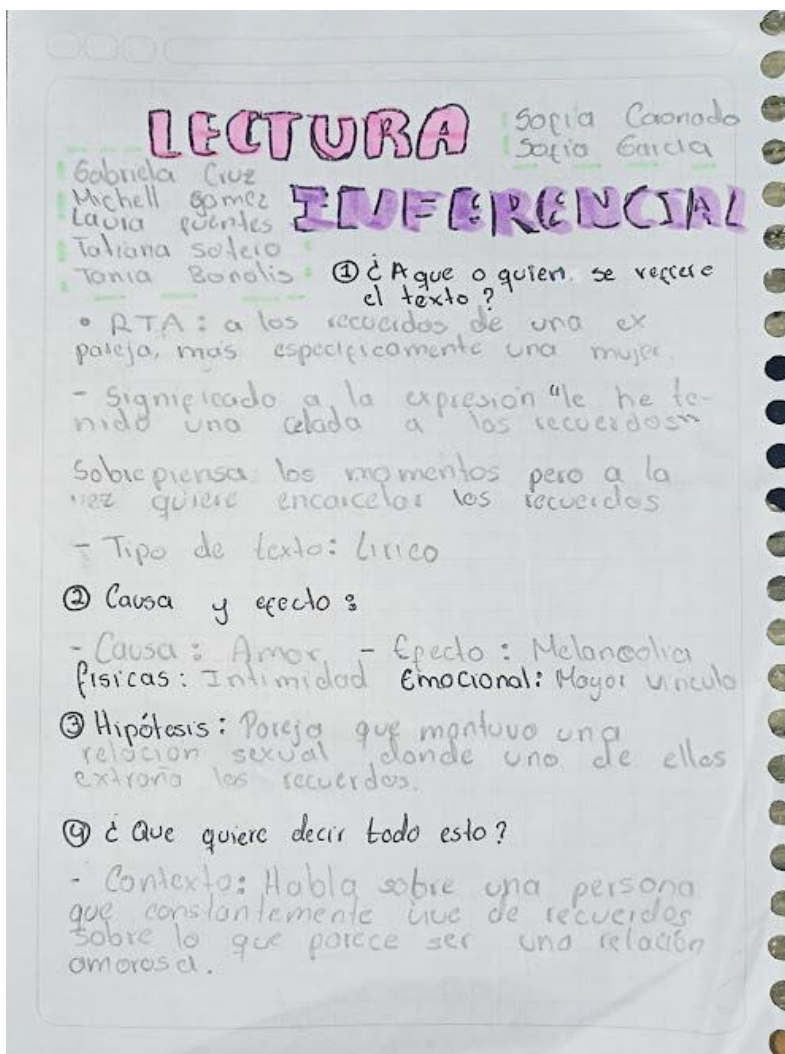 LECTURA
Sofia Caonado
Sofia Garcia
INFERENCIAL
Gabriela Cruz
Michell gomez
Laura puentes
Tatiana sotero
Tania Bonolis
① ¿A que o quien se refiere
el texto?
• RTA: a los recuerdos de una ex
pareja, mas especificamente una mujer.
- Significado a la expresión "le he te-
nido una celada a los recuerdos"
Sobrepiensa los momentos pero a la
vez quiere encarcelar los recuerdos
- Tipo de texto: Lirico
② Causa y efecto:
- Causa: Amor - Efecto: Melancolia
fisicas: Intimidad Emocional: Mayor vinculo
③ Hipótesis: Pareja que mantuvo una
relacion sexual donde uno de ellos
extraña los recuerdos.
④ ¿Que quiere decir todo esto?
- Contexto: Habla sobre una persona
que constantemente vive de recuerdos
sobre lo que parece ser una relación
amorosa.